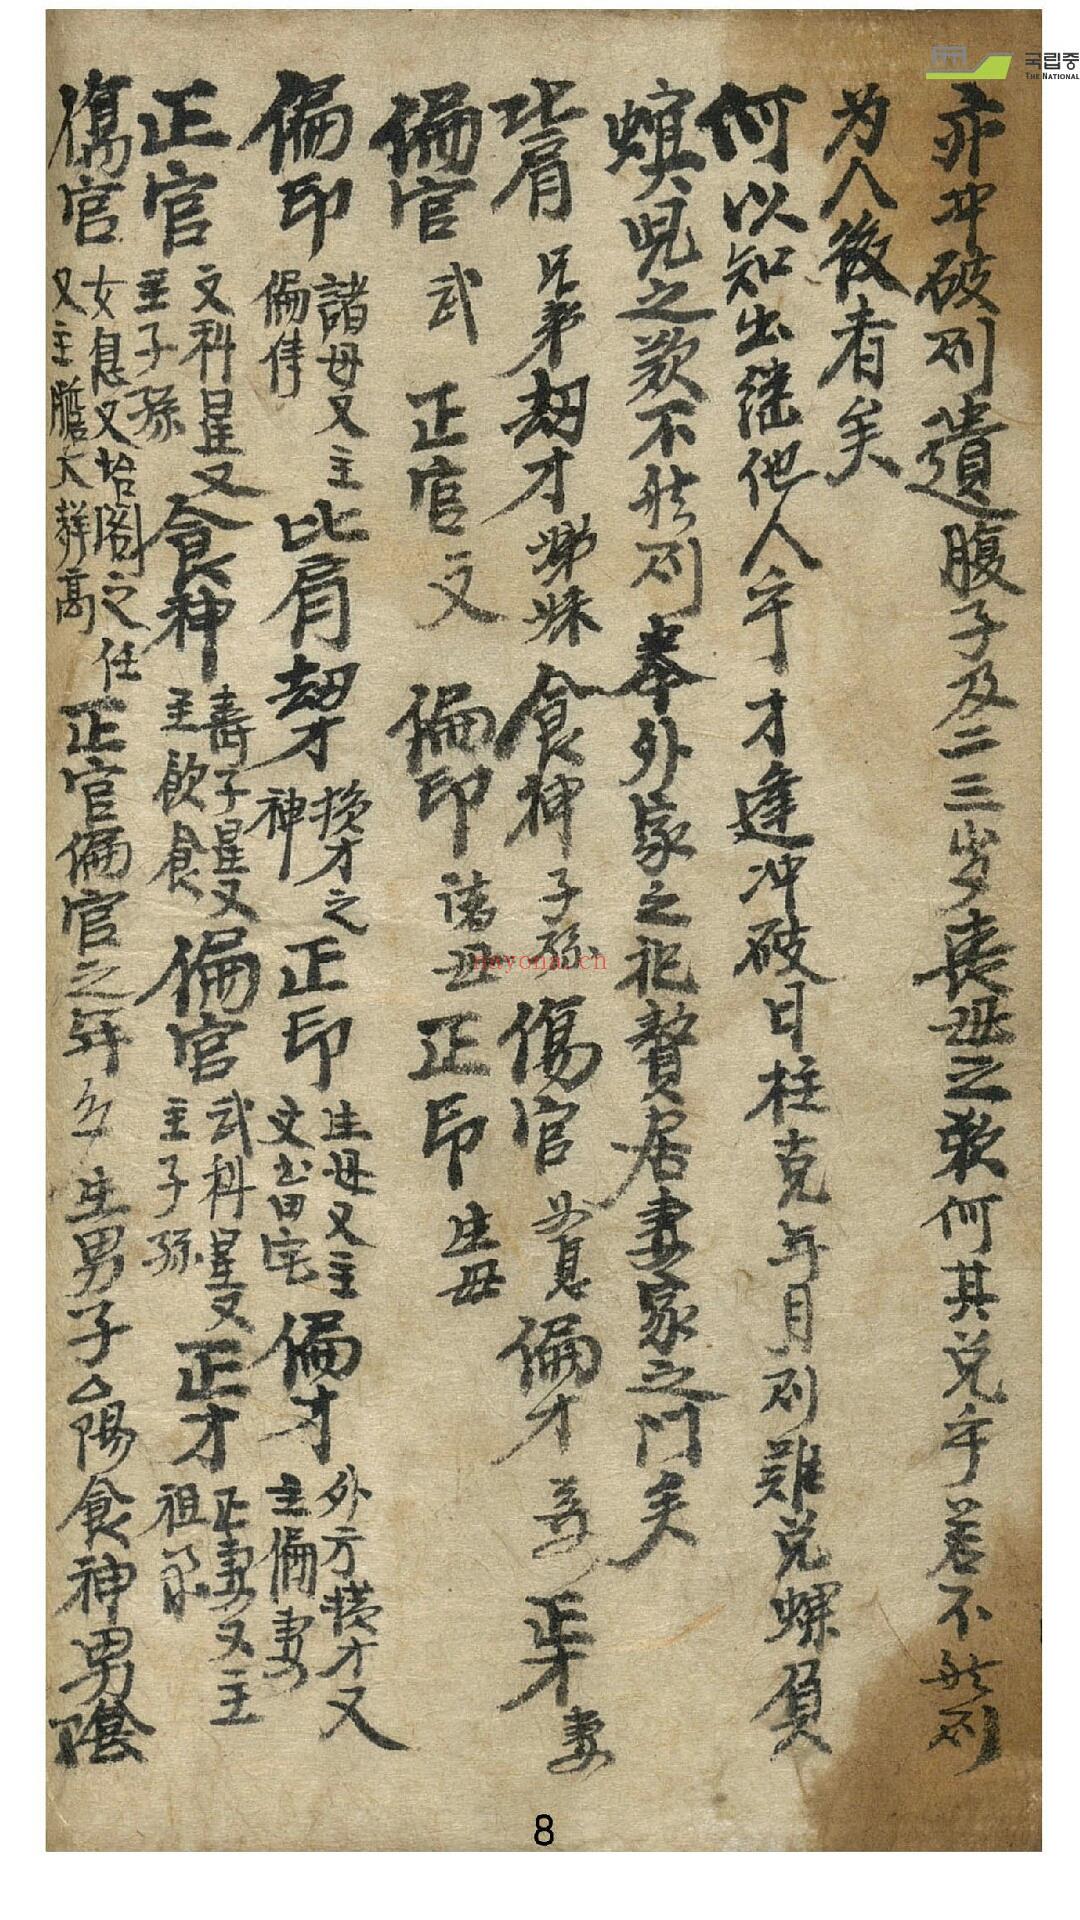 亦冲破則遺腹子及二三岁丧母之欵何其兑乎若不然則
为人後者矣
何以知出继他人乎才逢冲破日柱克年月則難兑螺負
螟児之欵不然則奉外家之祀贅居妻家之门矣
比肩 兄弟 劫才 娣妹 食神 子孫 傷官 女息 偏才 妾 正才 妻
偏官 武 正官 文 偏印 諸母 正印 生母
偏印 諸母又主偏 比肩 劫才 横才之神 正印 生母又主文书田宅 偏才 外方横才又主偏妻
正官 文科星又主子孫 食神 壽子星又主飲食 偏官 武科星又主子孫 正才 正妻又主祖
傷官 女息又台阁之任又主膽大辞高 正官偏官之年 生男子 陽食神男陰
국립중
THE NATIONAL
nayona.cn
8